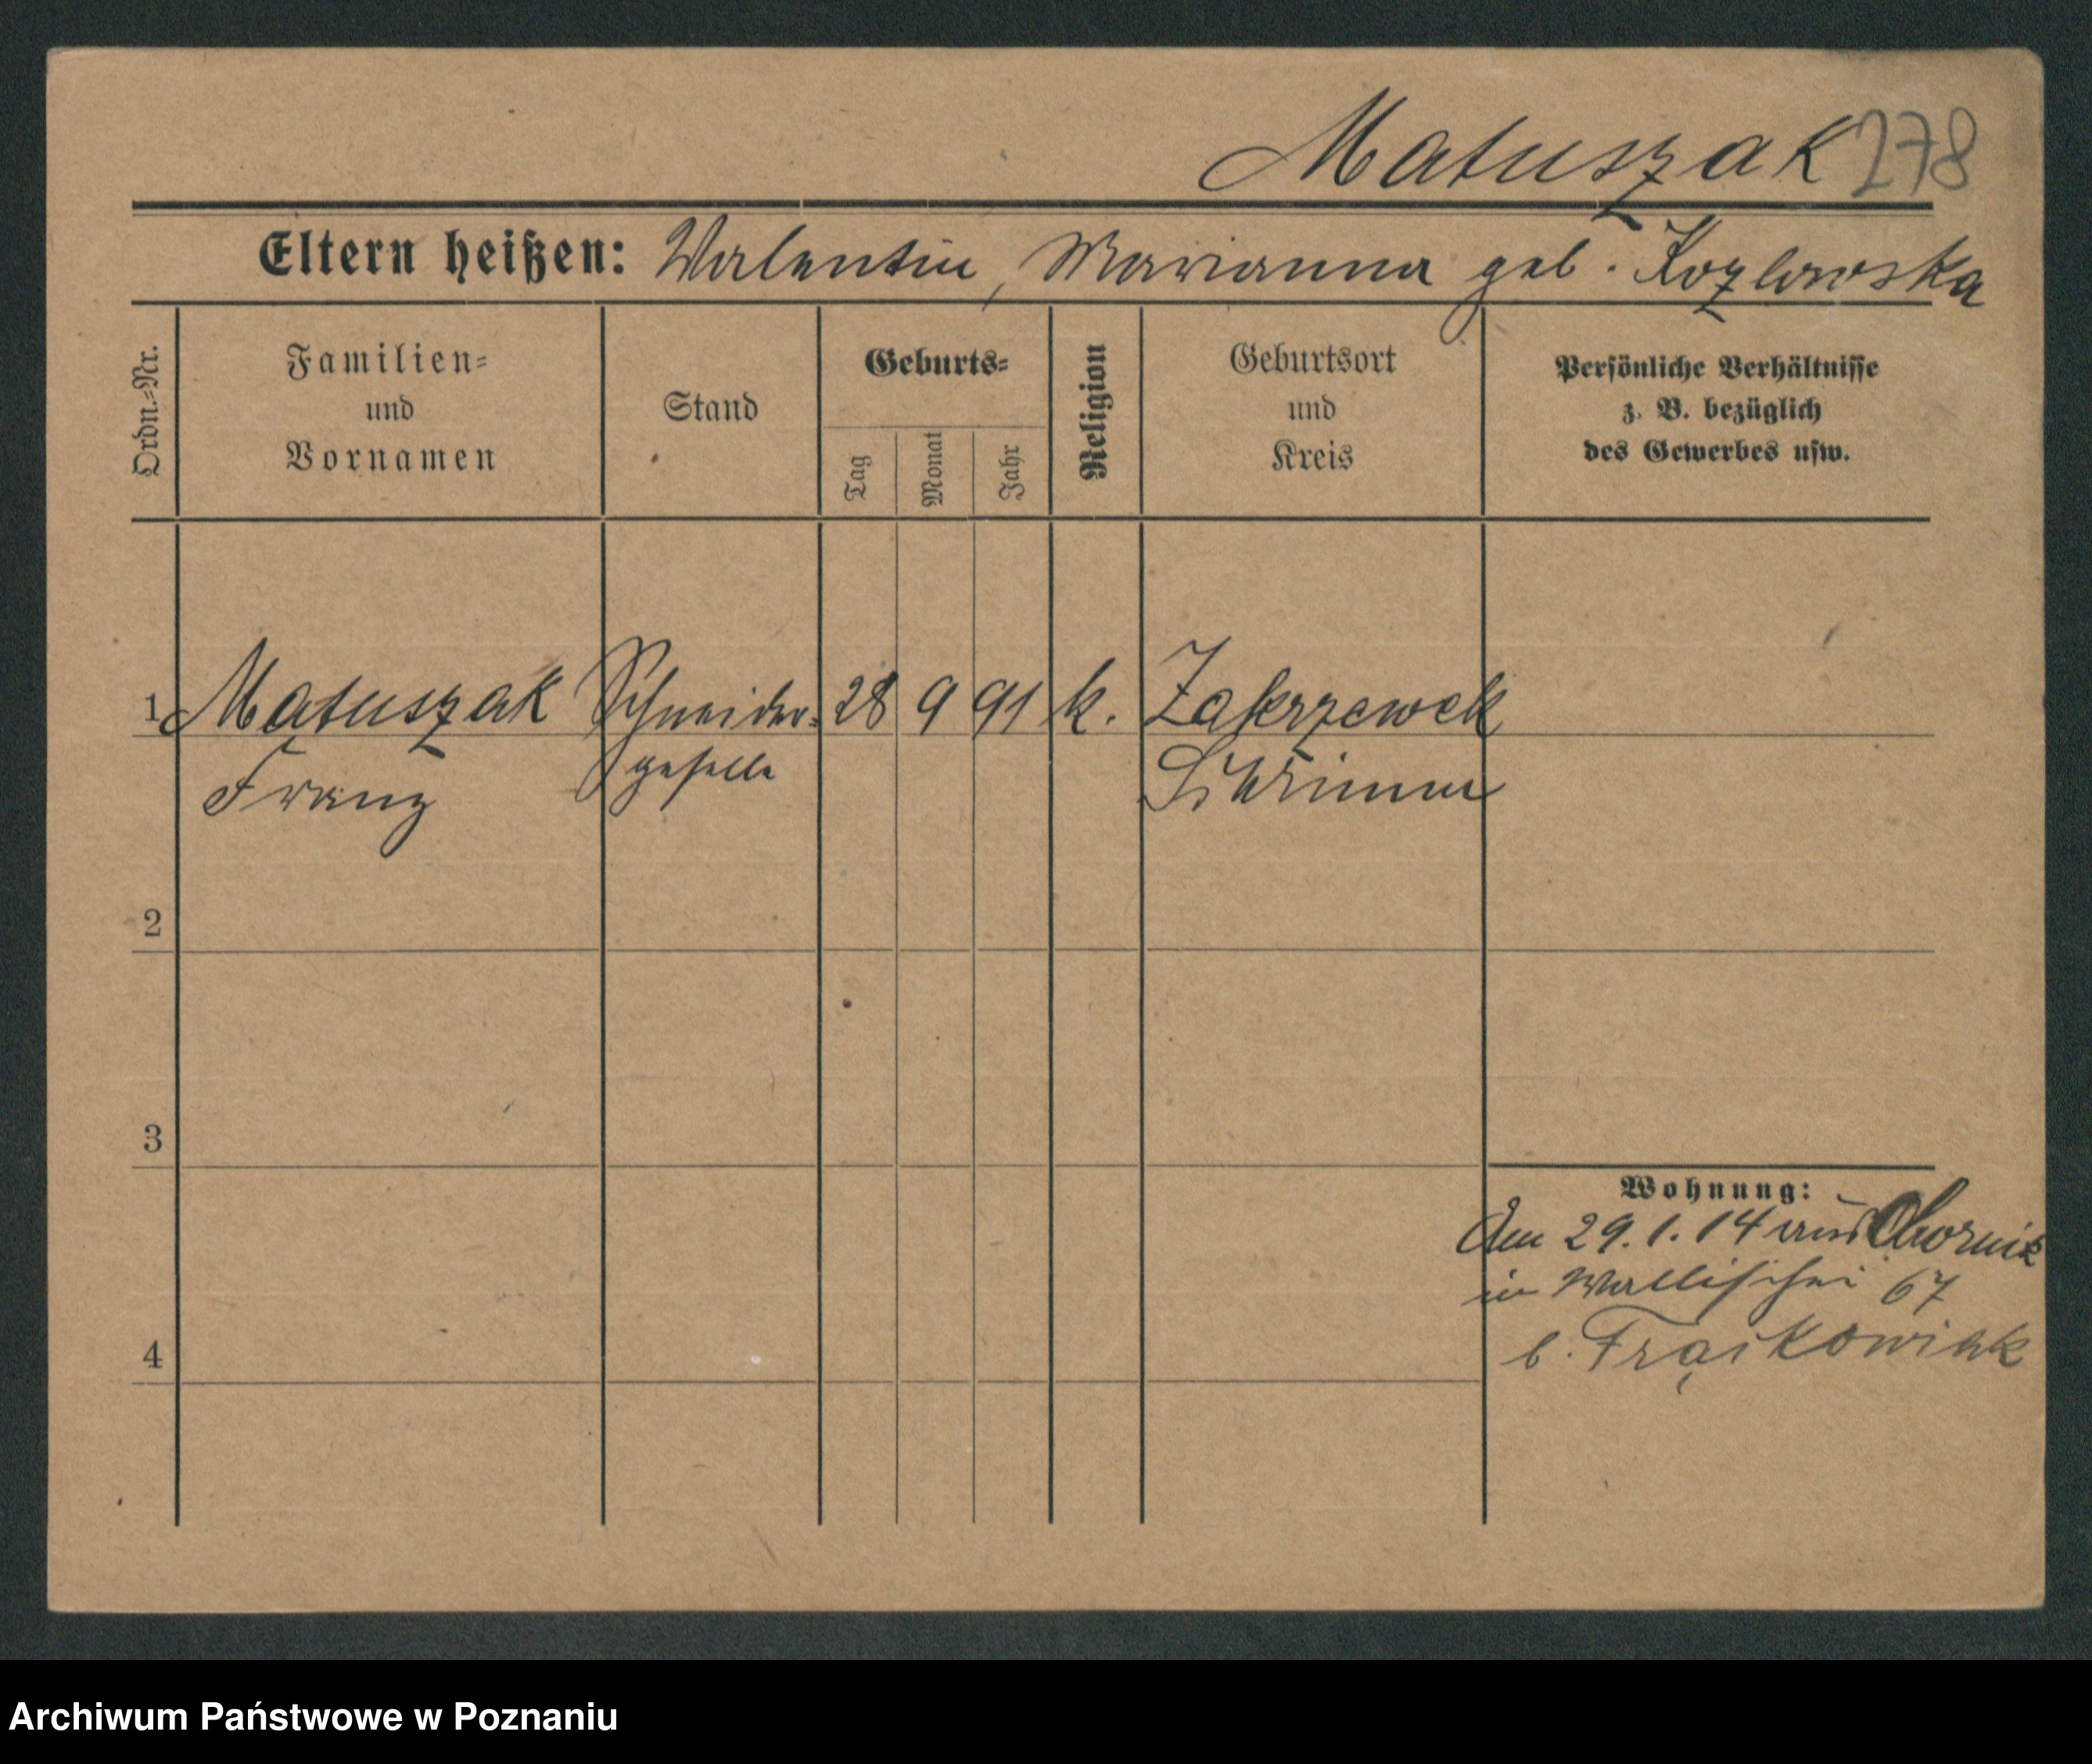 Matuszak 278
Eltern heißen: Valentin, Marianna geb. Kozlowska
Ordn.-Nr.
Familien-
und
Vornamen
Stand
Geburts-
Tag
Monat
Jahr
Religion
Geburtsort
und
Kreis
Persönliche Verhältnisse
z. B. bezüglich
des Gewerbes usw.
1 Matuszak Schneider- 28 9 91 k. Zakrzewek
Franz geselle Schrimm
2
3
4
Wohnung:
Am 29.1.14 aus Obornik
in Wallischei 67
b. Frąskowiak
Archiwum Państwowe w Poznaniu